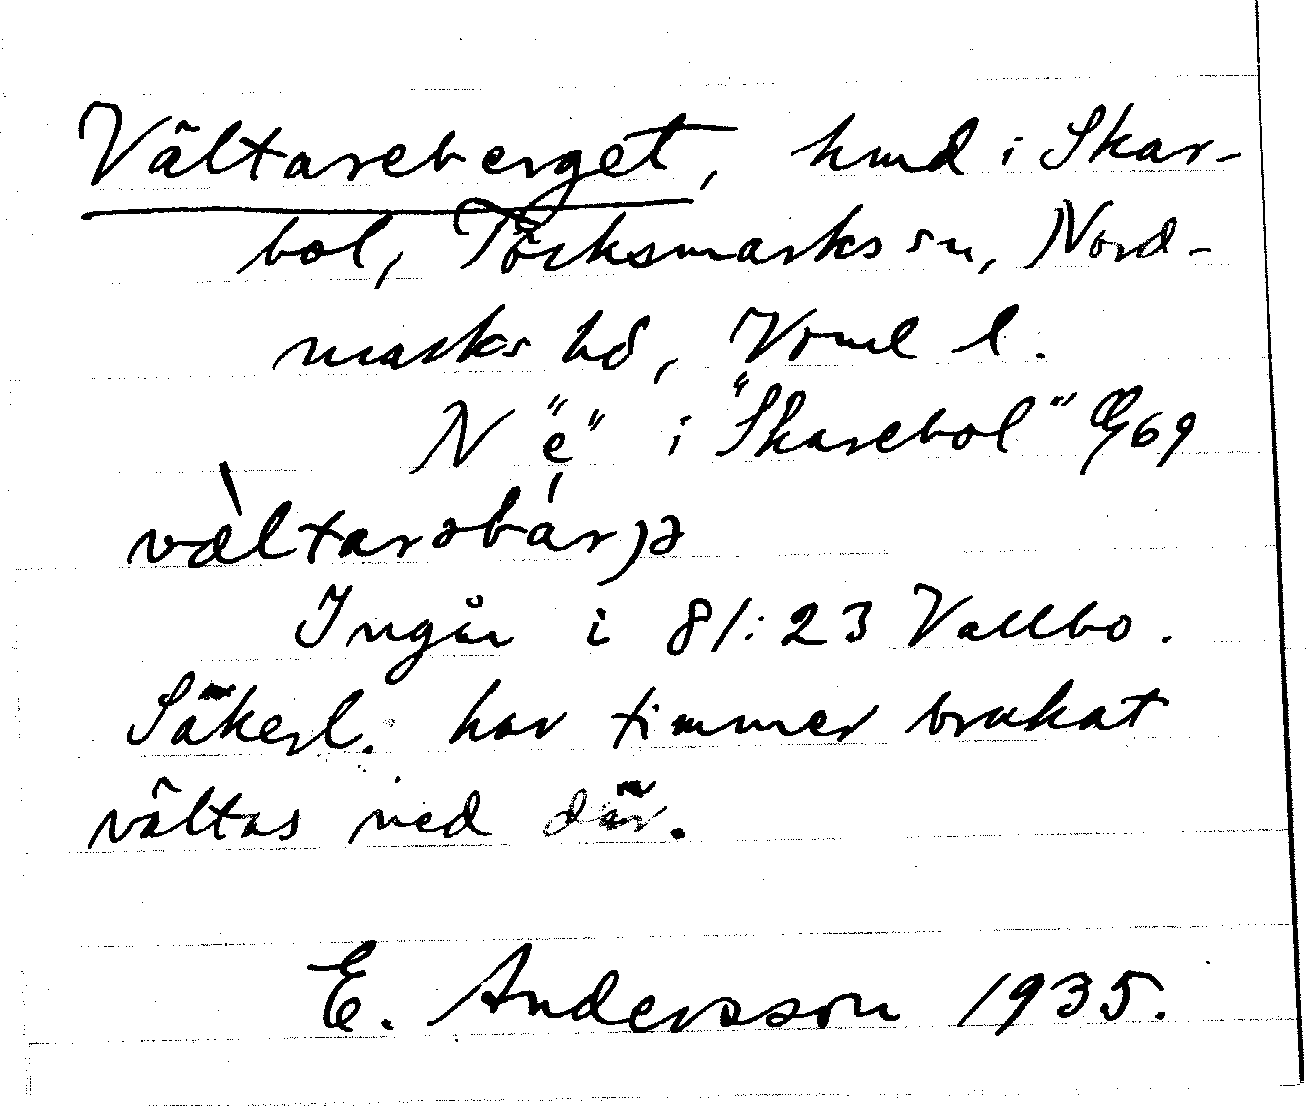 Vältareberget, hmd i Skar-
bol, Töcksmarks sn, Nord-
marks hd, Vrml l.
N "e" i "Skarebol" 69
væ̀ltarəbárjə
Ingår i 81:23 Vallbo.
Säkerl. har timmer brukat
vältas ned där.
E. Andersson 1935.